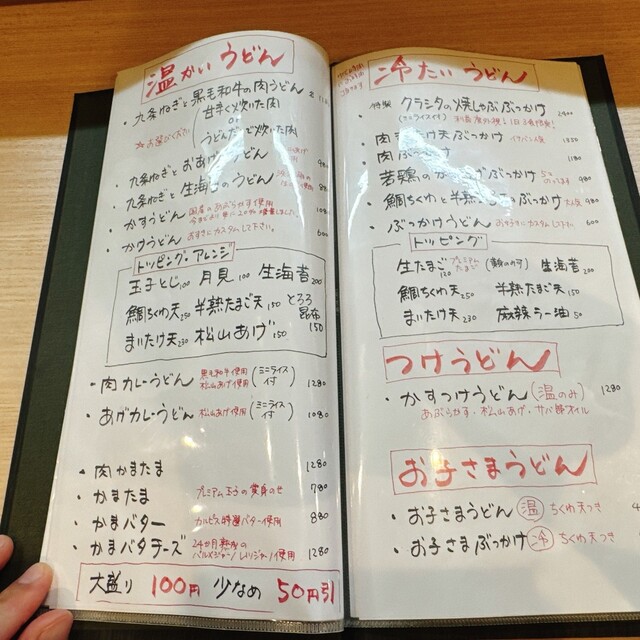 温かいうどん
・九条ねぎと黒毛和牛の肉うどん
甘辛く炊いた肉
or
うどんだしで炊いた肉
☆お選びください
・九条ねぎとおあげうどん 980
・九条ねぎと生海苔のうどん
・かすうどん 国産のあぶらかす使用 1080
・かけうどん お好きにカスタムして下さい。 600
トッピング・アレンジ
玉子とじ100 月見100 生海苔200
鯛ちくわ天250 半熟たまご天150 とろろ昆布150
まいたけ天230 松山あげ150
・肉カレーうどん 黒毛和牛使用 松山あげ使用 (ミニライス付) 1280
・あげカレーうどん 松山あげ使用 (ミニライス付) 1080
・肉かまたま 1280
・かまたま プレミアム玉子の黄身のせ 780
・かまバター カルピス特選バター使用 880
・かまバタチーズ 24か月熟成のパルメジャーノレッジャーノ使用 1280
大盛り 100円 少なめ 50円引
冷たいうどん
特製 クラシタの焼しゃぶぶっかけ
(ミニライス付)
・肉まいたけ天ぶっかけ
・肉ぶっかけ 1180
・若鶏のからあげぶっかけ 980
・鯛ちくわと半熟たまごぶっかけ 980
・ぶっかけうどん お好きにカスタムして下さい 600
トッピング
生たまご120 プレミアムたまご 生海苔200
鯛ちくわ天250 半熟たまご天150
まいたけ天230 麻辣ラー油50
つけうどん
・かすつけうどん(温のみ) 1280
あぶらかす・松山あげ・サバ節オイル
お子さまうどん
・お子さまうどん 温 ちくわ天つき
・お子さまぶっかけ 冷 ちくわ天つき